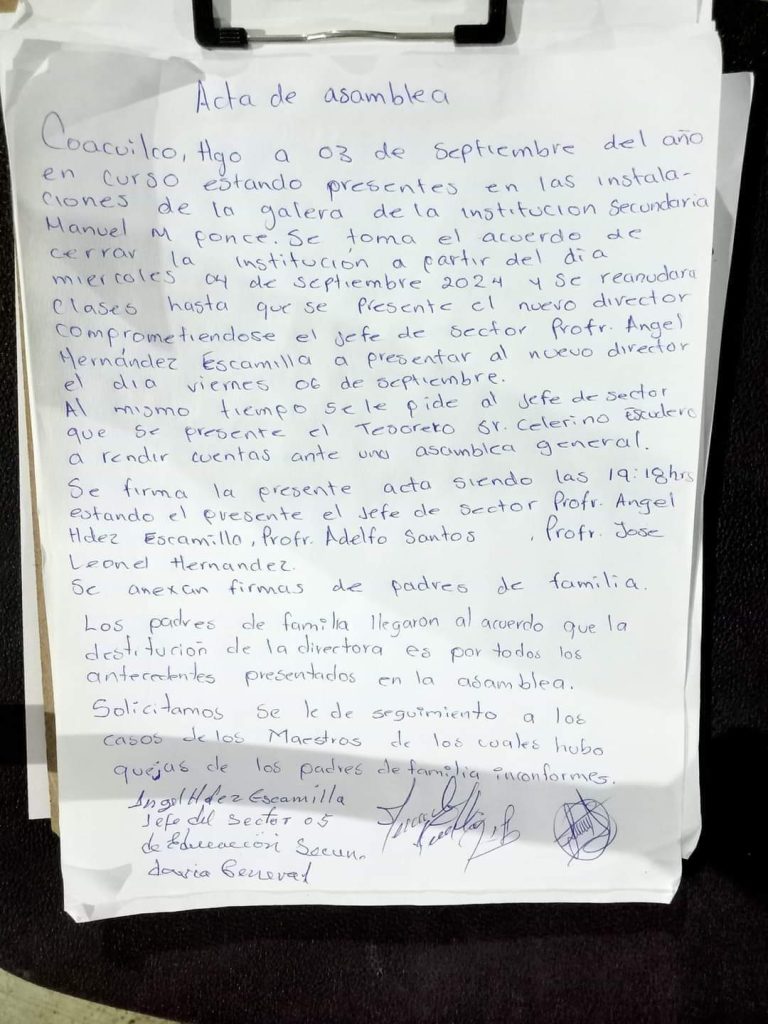 Acta de asamblea
Coacuilco, Hgo a 03 de septiembre del año
en curso estando presentes en las instala-
ciones de la galera de la institucion secundaria
Manuel M Ponce. Se toma el acuerdo de
cerrar la institución a partir del dia
miercoles 04 de septiembre 2024 y se reanudara
clases hasta que se presente el nuevo director
comprometiendose el jefe de sector Profr. Angel
Hernández Escamilla a presentar al nuevo director
el dia viernes 06 de septiembre.
Al mismo tiempo se le pide al jefe de sector
que se presente el Tesorero Sr. Celerino Escudero
a rendir cuentas ante una asamblea general.
Se firma la presente acta siendo las 19:18hrs
estando el presente el jefe de sector Profr. Angel
Hdez Escamilla, Profr. Adelfo Santos , Profr. Jose
Leonel Hernandez.
Se anexan firmas de padres de familia.
Los padres de familia llegaron al acuerdo que la
destitución de la directora es por todos los
antecedentes presentados en la asamblea.
Solicitamos se le de seguimiento a los
casos de los Maestros de los cuales hubo
quejas de los padres de familia inconformes.
Angel Hdez Escamilla
Jefe del sector 05
de Educación Secun-
daria General